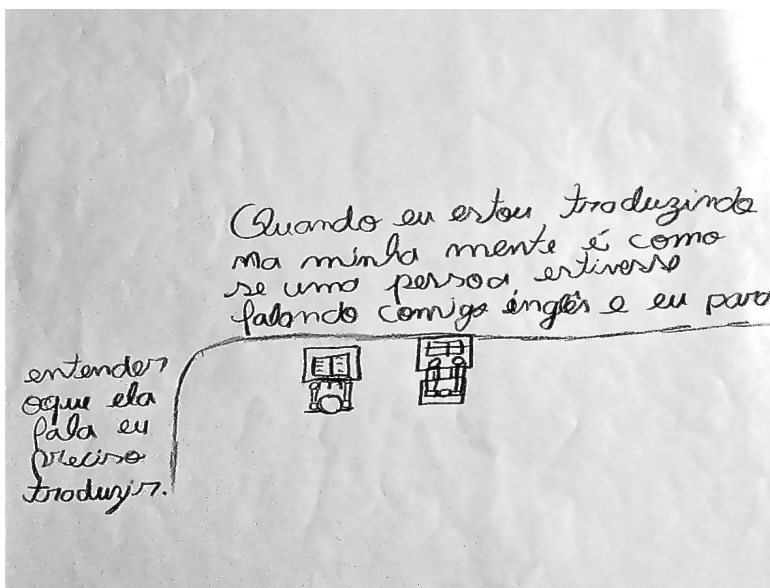 Quando eu estou traduzindo
na minha mente é como
se uma pessoa estivesse
falando comigo inglês e eu para
entender
oque ela
fala eu
preciso
traduzir.